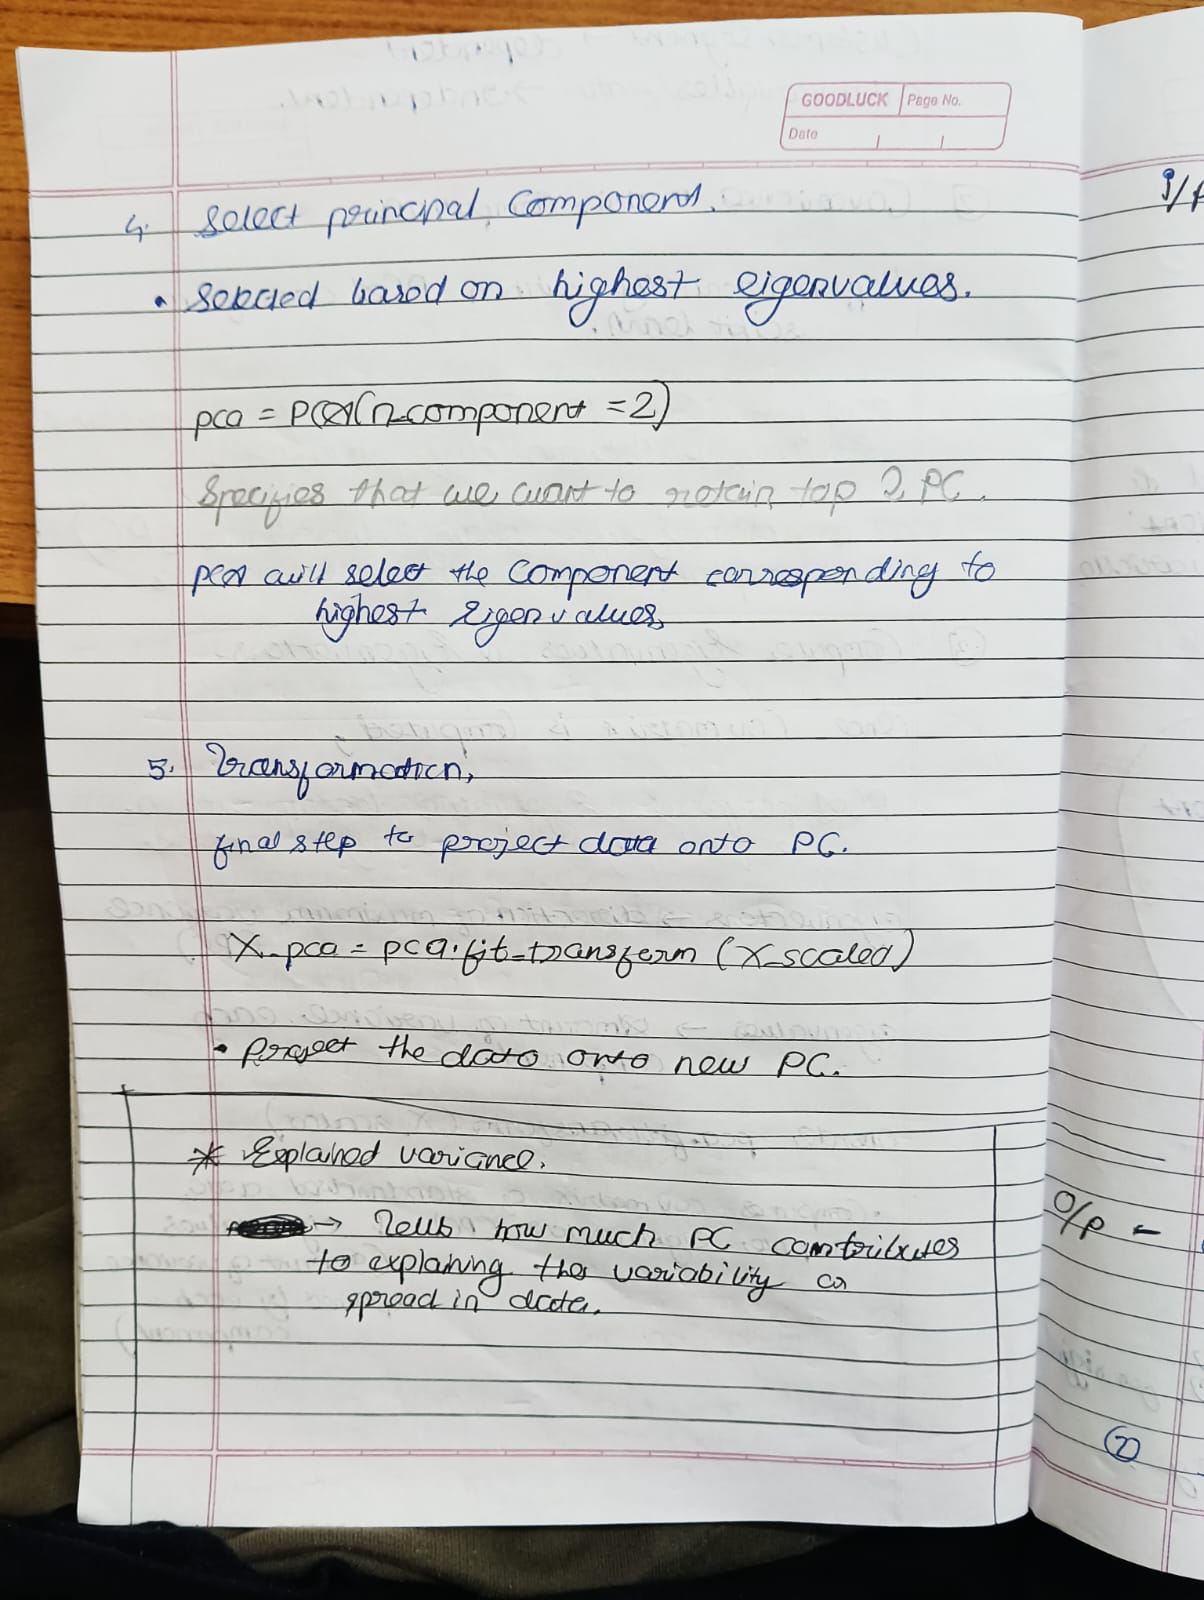 GOODLUCK Page No.
Date
4. Select principal Component.
• Selected based on highest eigenvalues.
pca = PCA(n_component = 2)
Specifies that we want to retain top 2 PC.
PCA will select the component corresponding to
highest Eigenvalues.
5. Transformation,
final step to project data onto PC.
X_pca = pca.fit_transform (X_scaled)
• Project the data onto new PC.
* Explained variance.
→ Tells how much PC contributes
to explaining the variability or
spread in data.
O/P –
2